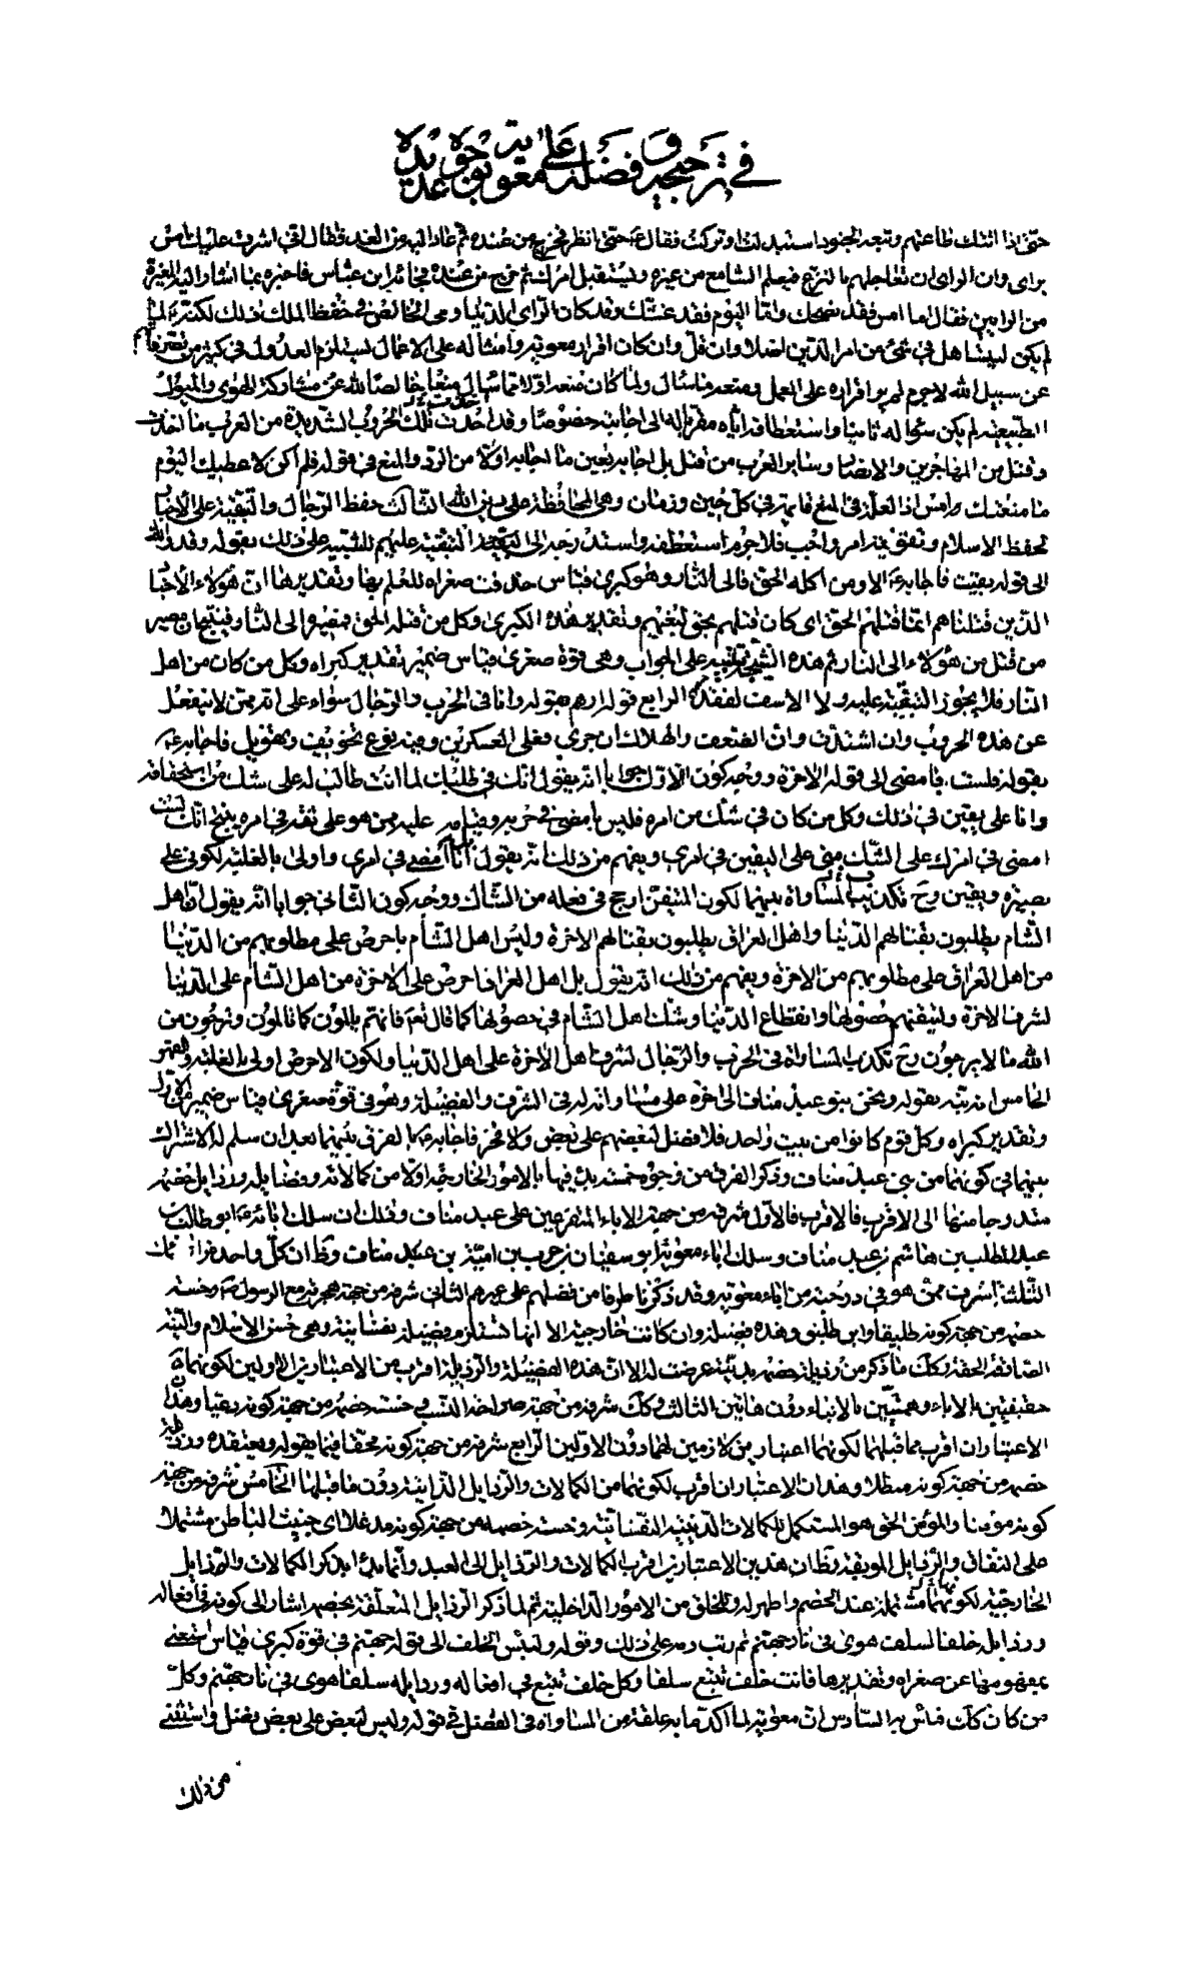 في ترجيحه وفضله على معوية بوجوه عديدة
حتى اذا اتتك طاعتهم وتبعه الجنود استبدلت او تركت فقال ع حتى انظر فخرج من عنده ثم عاد اليه من الغد فقال اني اشرت عليك امس
براى وان الراى ان تعاجلهم بالنزع فيعلم السامع من غيره وليستقبل امرك ثم خرج من عنده فجائه ابن عباس فاخبره بما اشار اليه المغيرة
من الرايين فقال اما امس فقد نصحك واما اليوم فقد غشك وقد كان الراى الدنياوي الخالص في حفظ الملك ذلك لكنه ع لما
لم يكن ليتساهل في شئ من امر الدين اصلا وان قل وان كان اقرار معوية وامثاله على الاعمال يستلزم العدول في كثير من تصرفاتهم
عن سبيل الله لا جرم لم ير اقراره على العمل ومنعه ما سأل ولما كان منعه اولا مما سأل منعا خالصا لله عن مشاركة الهوى والميول
الطبيعية لم يكن سؤاله ثانيا واستعطافه اياه مقربا له الى اجابته خصوصا وقد حدثت تلك الحروب الشديدة من العرب ما اخذت
وقتل من المهاجرين والانصار وساير العرب من قتل بل اجابه بعين ما اجابه اولا من الرد والمنع في قوله فلم اكن لاعطيك اليوم
ما منعتك امس اذ العلة في المنع قائمة في كل حين وزمان وهى المحافظة على دين الله الثالث حفظ الرجال والتبقية على الاجناد
لحفظ الاسلام وتقوى به امر واجب فلا جرم استعطفه واستدرجه الى التبقية عليهم للتنبيه على ذلك بقوله وقد الله
الى قوله بقيت فاجابه ع الا ومن اكله الحق فالى النار وهو كبرى قياس حذفت صغراه للعلم بها وتقديرها ان هؤلاء الاجناد
الذين قتلناهم انما قتلهم الحق اى كان قتلهم بحق لبغيهم وتقدير هذه الكبرى وكل من قتله الحق فمصيره الى النار فينتج ان مصير
من قتل من هؤلاء الى النار ثم هذه النتيجة تنبيه على الجواب وهى قوة صغرى قياس ضمير تقدير كبراه وكل من كان من اهل
النار فلا يجوز التبقية عليه ولا الاسف لفقده الرابع قوله بقوله وانا في الحرب والرجال سواء على انه ممن لا ينفعل
عن هذه الحروب وان اشتدت وان الضعف والهلاك ان جرى فعلى العسكرين وفيه نوع تخويف وتهويل فاجابه ع
بقوله فلست بامضى الى قوله الاخرة ووجه كون الاول جوابا انه يقول انك في طلبك لما انت طالب له على شك من استحقاقه
وانا على يقين في ذلك وكل من كان في شك من امره فليس بامضى في حربه وقيامه عليه ممن هو على ثقة في امره ينتج انك لست
امضى في امرك على الشك منى على اليقين في امرى ويفهم من ذلك انه يقول انا امضى في امرى واولى بالغلبة لكونى على
بصيرة ويقين وح تكذيب المساواة بينهما لكون المتيقن ارجح في فعله من الشاك ووجه كون الثانى جوابا انه يقول ان اهل
الشام يطلبون بقتالهم الدنيا واهل العراق يطلبون بقتالهم الاخرة وليس اهل الشام باحرص على مطلوبهم من الدنيا
من اهل العراق على مطلوبهم من الاخرة ويفهم من ذلك انه يقول بل اهل العراق احرص على الاخرة من اهل الشام على الدنيا
لشرف الاخرة ولتيقنهم حصولها وانقطاع الدنيا وشك اهل الشام في حصولها كما قال تعالى فانهم يالمون كما تالمون وترجون من
الله ما لا يرجون وح تكذب المساواة في الحرب والرجال لشرف اهل الاخرة على اهل الدنيا ولكون الاحرص اولى بالغلبة والقهر
الخامس انه نبه بقوله ونحن بنو عبد مناف الى اخره على مساواته له في الشرف والفضيلة وهو في قوة صغرى قياس ضمير من الاول
وتقدير كبراه وكل قوم كانوا من بيت واحد فلا فضل لبعضهم على بعض ولا فخر فاجابه ع بالفرق بينهما بعد ان سلم له الاشتراك
بينهما في كونهما من بنى عبد مناف وذكر الفرق من وجوه خمسة بدأ فيها بالامور الخارجية اولا من كمالاته وفضايله ورذايل خصمه
متدرجا منها الى الاقرب فالاقرب فالاول شرفه من جهة الاباء المتفرعين على عبد مناف وذلك ان سلك ابائه ع ابو طالب بن
عبد المطلب بن هاشم بن عبد مناف وسلك اباء معوية ابو سفيان بن حرب بن امية بن عبد مناف وظ ان كل واحد من اولئك
الثلثة اشرف ممن هو في درجته من اباء معوية وقد ذكرنا طرفا من فضلهم على غيرهم الثانى شرفه من جهة هجرته مع الرسول ص وخسة
خصمه من جهة كونه طليقا وابن طليق وهذه فضيلة وان كانت خارجية الا انها تستلزم فضيلة نفسانية وهى حسن الاسلام والنية
الصادقة الحقة وكك ما ذكر من رذيلة خصمه بدنية عرضت له الا ان هذه الفضيلة والرذيلة اقرب من الاعتبارين الاولين لكونهما
حقيقتين بالاباء وهميتين بالابناء دون هاتين الثالث وكك شرفه من جهة صراحة النسب وخسة خصمه من جهة كونه دعيا وهذان
الاعتباران اقرب مما قبلهما لكونهما اعتبارين لازمين لهما دون الاولين الرابع شرفه من جهة كونه محقا فيما يقوله ويعتقده ورذيلة
خصمه من جهة كونه مبطلا وهذان الاعتباران اقرب لكونهما من الكمالات والرذايل الذاتية دون ما قبلها الخامس شرفه من جهة
كونه مؤمنا والمؤمن الحق هو المستكمل للكمالات الدينية النفسانية وخسة خصمه من جهة كونه مدغلا اى خبيث الباطن مشتملا
على النفاق والرذايل الموبقة وظ ان هذين الاعتبارين اقرب الكمالات والرذايل الى العبد وانما بدأ بذكر الكمالات والرذايل
الخارجية لكونها مسلمة عند الخصم واظهر له وللخلق من الامور الداخلية ثم لما ذكر الرذايل المتعلقة بخصمه اشار الى كونه في افعاله
ورذايله خلفا لسلف هوى في نار جهنم ثم رتب رده على ذلك وقوله ولبئس الخلف الى قوله جهنم في قوة كبرى قياس استغنى
بمفهومها عن صغراه وتقديرها فانت خلف تتبع سلفا وكل خلف تتبع في افعاله ورذايله سلفا هوى في نار جهنم وكل
من كان كك فبئس به السادس ان معوية لما اكد ما به علقة من المساواة في الفضل في قوله وليس لبعض على بعض فضل واستثنى
من ذلك